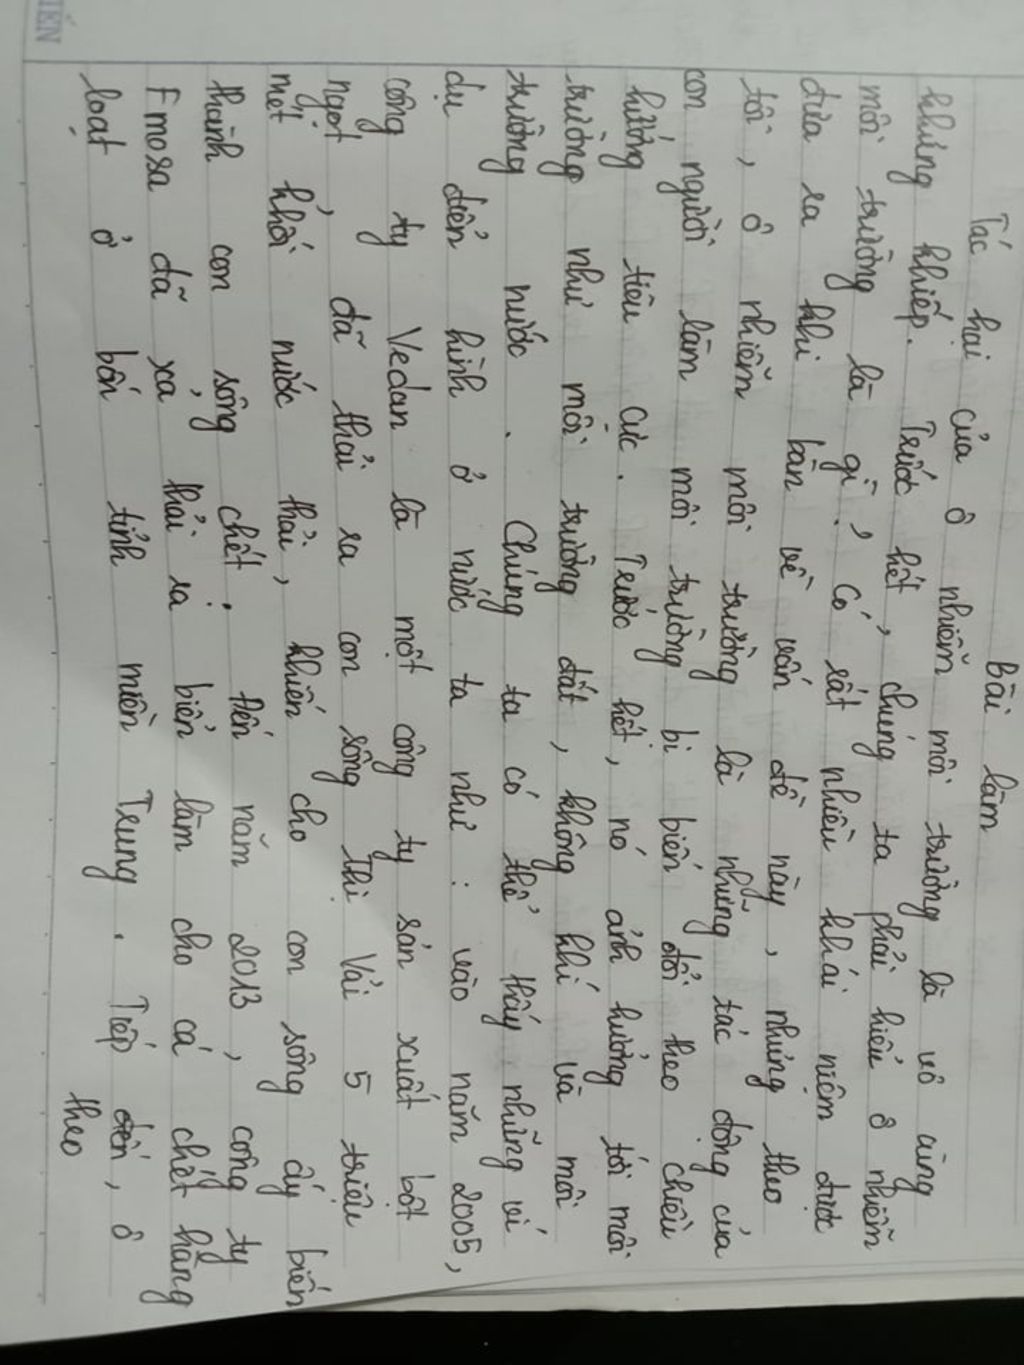 IẾN
Bài làm
Tác hại của ô nhiễm môi trường là vô cùng
khủng khiếp. Trước hết, chúng ta phải hiểu ô nhiễm
môi trường là gì, có rất nhiều khái niệm được
đưa ra khi bàn về vấn đề này, nhưng theo
tôi, ô nhiễm môi trường là những tác động của
con người làm môi trường bị biến đổi theo chiều
hướng tiêu cực. Trước hết, nó ảnh hưởng tới môi
trường như môi trường đất, không khí và môi
trường nước. Chúng ta có thể thấy những ví
dụ điển hình ở nước ta như: vào năm 2005,
công ty Vedan là một công ty sản xuất bột
ngọt, đã thải ra con sông Thị Vải 5 triệu
mét khối nước thải, khiến cho con sông ấy biến
thành con sông chết; đến năm 2013, công ty
Fmosa đã xả thải ra biển làm cho cá chết hàng
loạt ở bốn tỉnh miền Trung. Tiếp đến, ô
theo